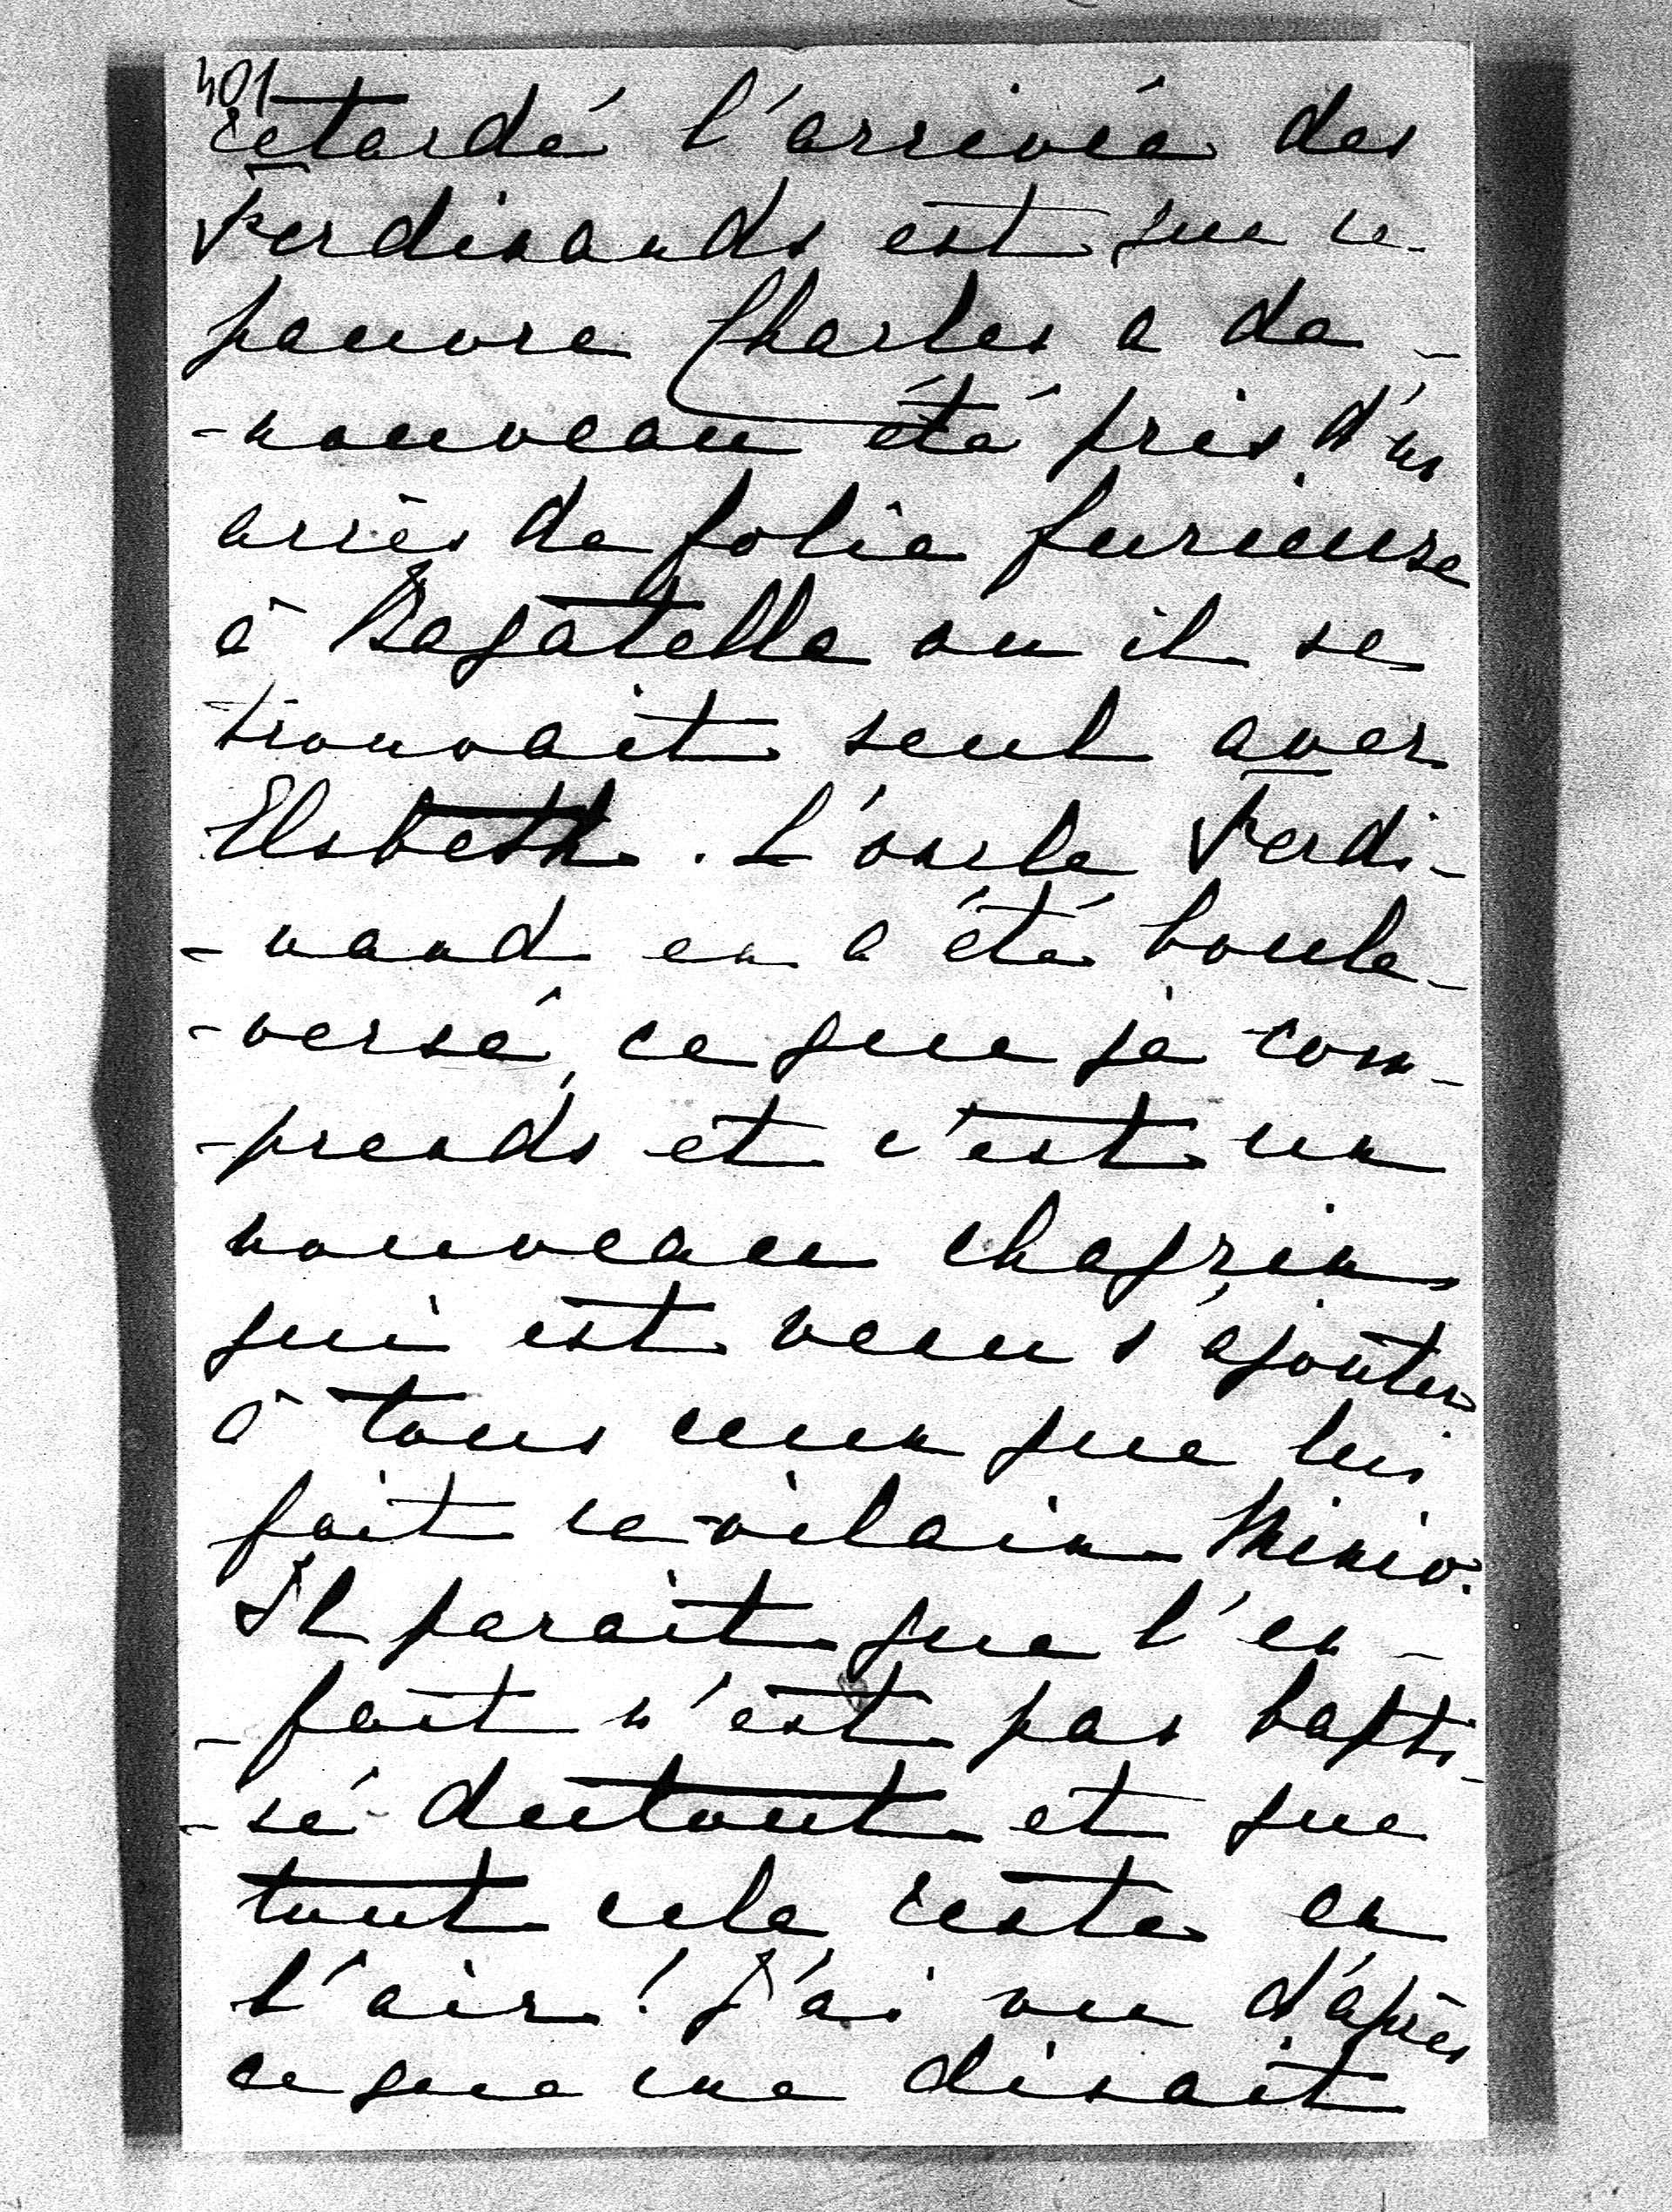 401
retardé l'arrivée des
Ferdinands est que ce
pauvre Charles a de -
- nouveau été pris d'un
accès de folie furieuse
à Bagatelle ou il se
trouvait seul avec
Elsbeth. L'oncle Ferdi -
- nand en a été boule -
- versé, ce que je com -
- prends et c'est un
nouveau chagrin
qui est venu s'ajouter
à tous ceux que lui
fait ce vilain Minio.
Il parait que l'en -
- fant n'est pas bapti -
- sé du tout et que
tout cela reste en
l'air ! J'ai vu d'après
ce que me disait